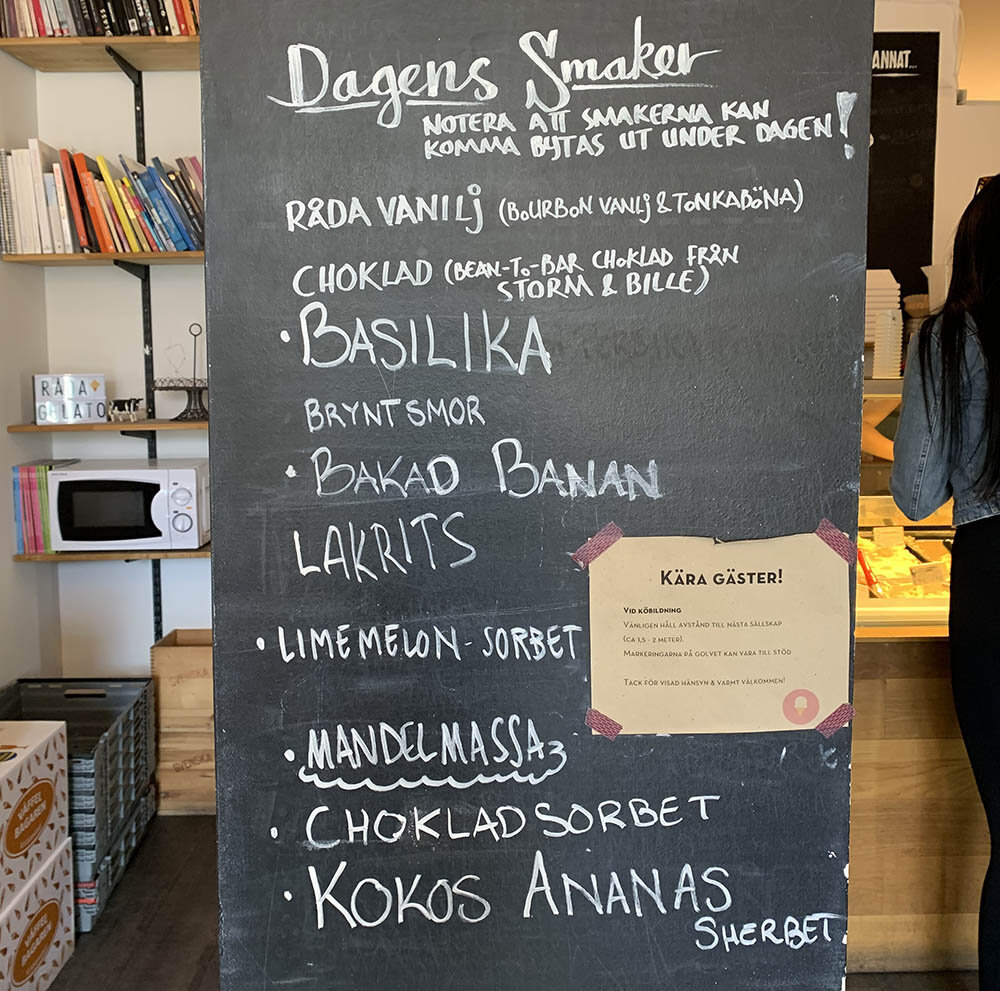 Dagens Smaker
NOTERA ATT SMAKERNA KAN
KOMMA BYTAS UT UNDER DAGEN!
RÅDA VANILJ (BOURBON VANLJ & TONKABÖNA)
CHOKLAD (BEAN-TO-BAR CHOKLAD FRÅN
STORM & BILLE)
• BASILIKA
BRYNT SMOR
• BAKAD BANAN
LAKRITS
• LIMEMELON-SORBET
• MANDELMASSA
• CHOKLADSORBET
• KOKOS ANANAS
SHERBET
KÄRA GÄSTER!
VID KÖBILDNING
VÄNLIGEN HÅLL AVSTÅND TILL NÄSTA SÄLLSKAP
(CA 1,5 - 2 METER).
MARKERINGARNA PÅ GOLVET KAN VARA TILL STÖD
TACK FÖR VISAD HÄNSYN & VARMT VÄLKOMMEN!
ANNAT...
RÅDA
GELATO
VÅFFEL
BAGAREN
VÅFFEL
BAGAREN